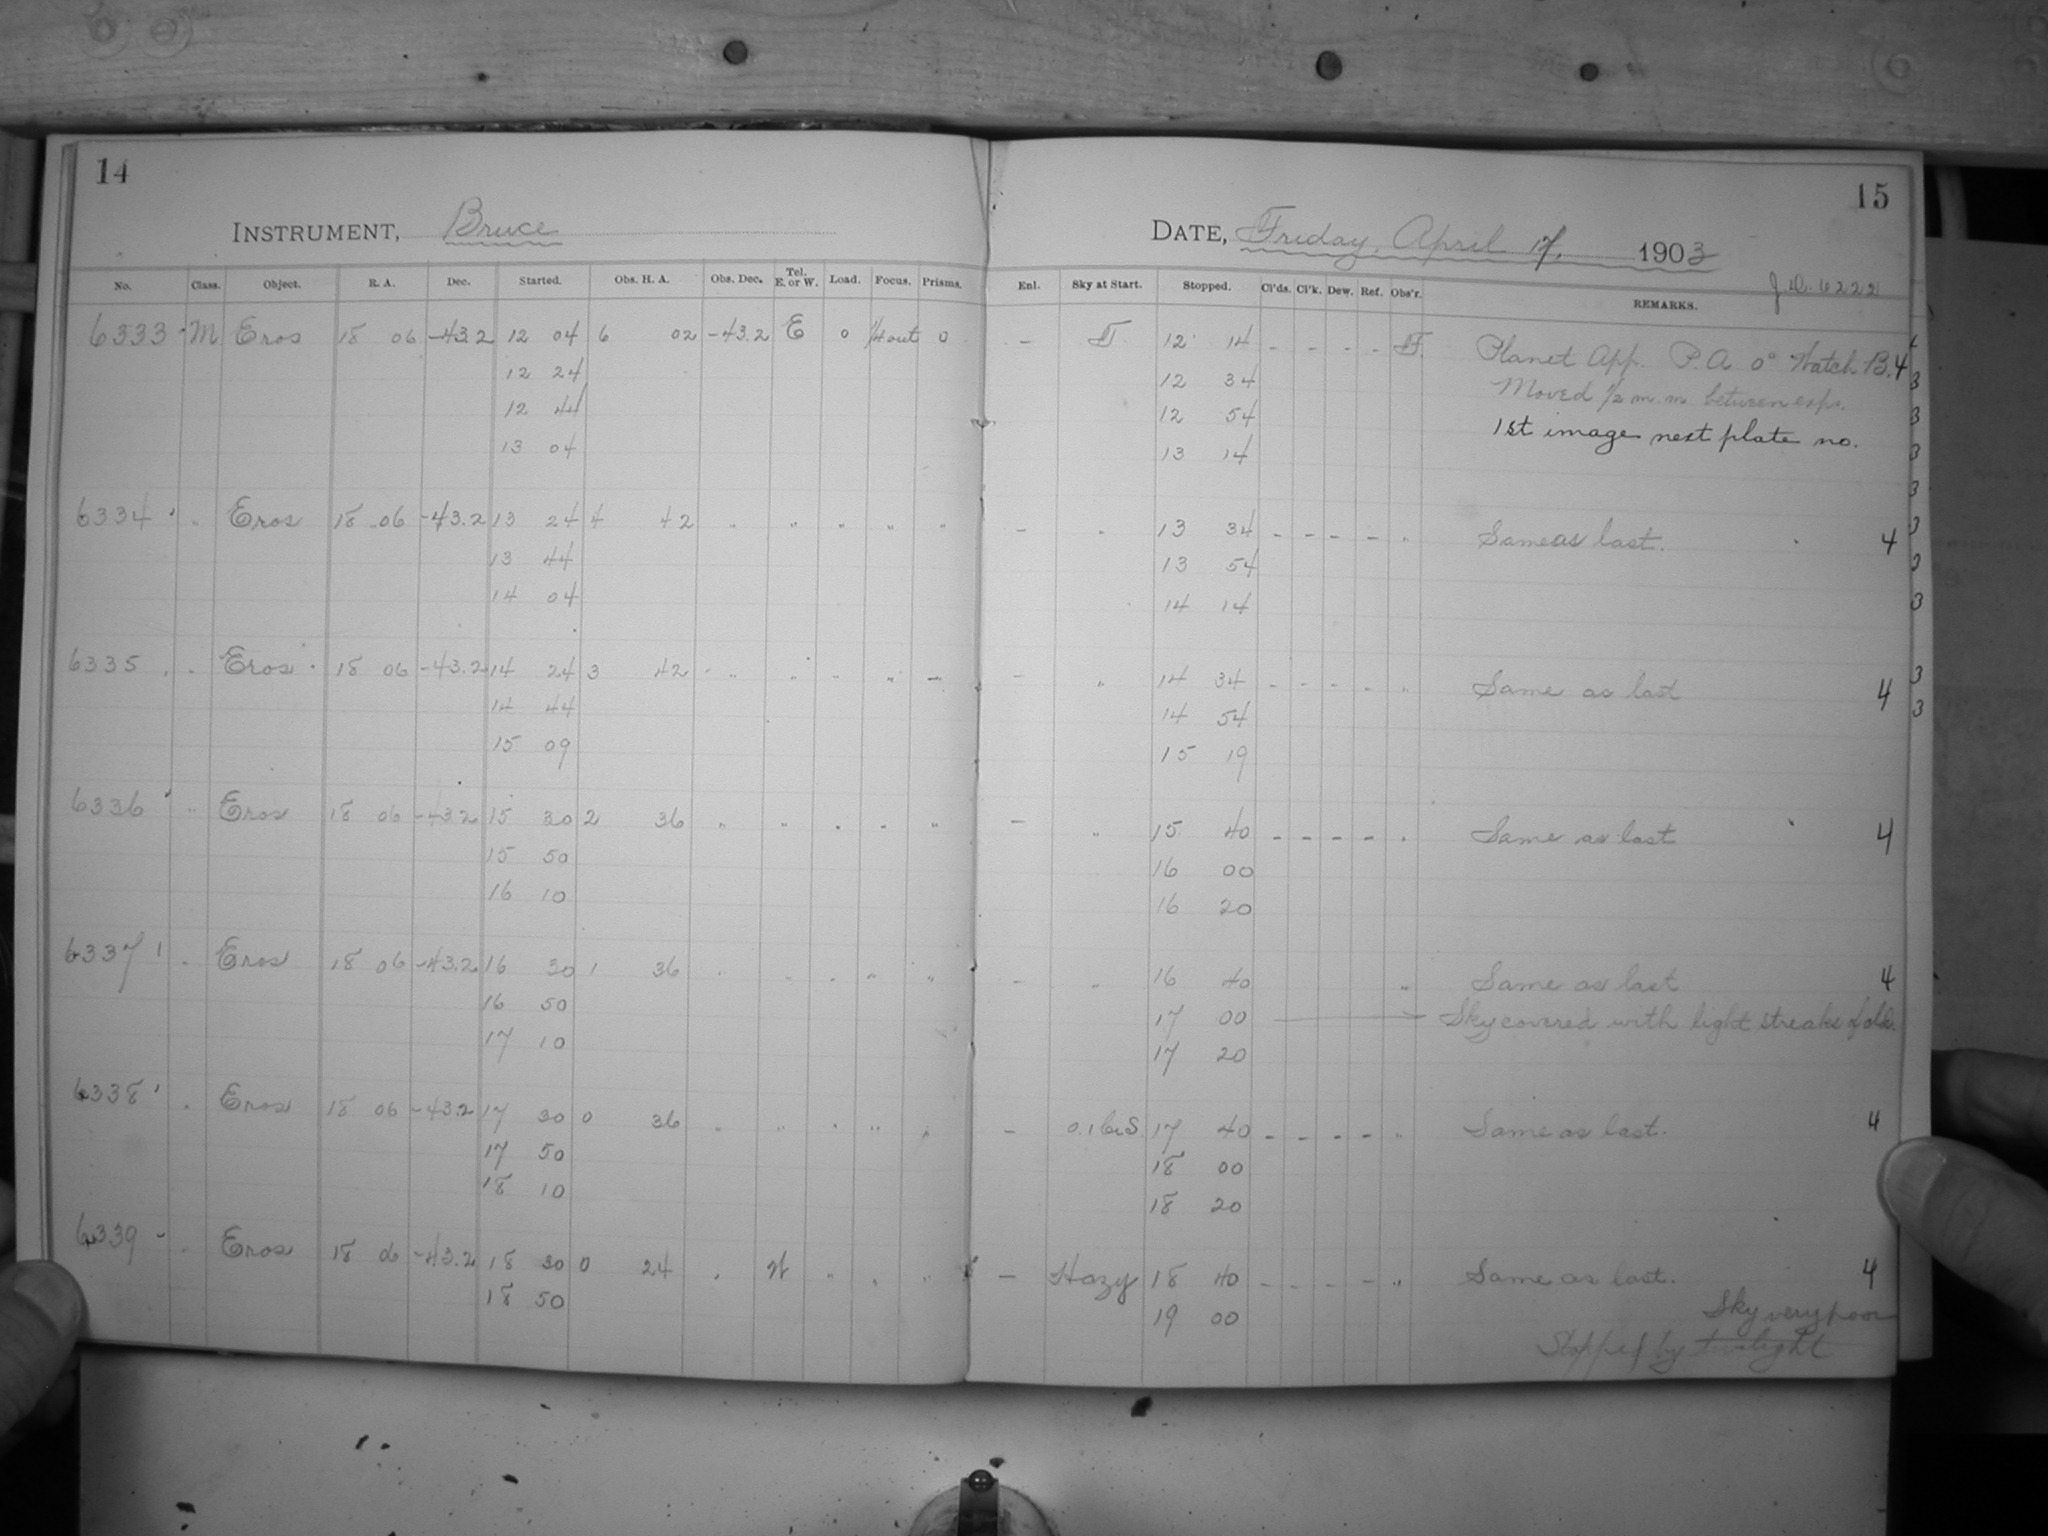 14
INSTRUMENT, Bruce
No. Class. Object. R. A. Dec. Started. Obs. H. A. Obs. Dec. Tel. E. or W. Load. Focus. Prisms.
6333 M Eros 18 06 -43.2 12 04 6 02 -43.2 E 0 1/4 out 0
12 24
12 44
13 04
6334 " Eros 18 06 -43.2 13 24 4 42 " " " " "
13 44
14 04
6335 " Eros 18 06 -43.2 14 24 3 42 " " " " "
14 44
15 09
6336 " Eros 18 06 -43.2 15 30 2 36 " " " " "
15 50
16 10
6337 " Eros 18 06 -43.2 16 30 1 36 " " " " "
16 50
17 10
6338 " Eros 18 06 -43.2 17 30 0 36 " " " " "
17 50
18 10
6339 " Eros 18 06 -43.2 18 30 0 24 " W " " "
18 50
15
DATE, Friday, April 17, 1903
J.D. 6222
Enl. Sky at Start. Stopped. Cl'ds. Cl'k. Dew. Ref. Obs'r. REMARKS.
- 12 14 - - - - F. Planet App. P.A. 0° Watch B. 4
12 34 Moved 1/2 m.m. between exps.
12 54 1st image next plate no.
13 14
- " 13 34 - - - - " Same as last. 4
13 54
14 14
- " 14 34 - - - - " Same as last 4
14 54
15 19
- " 15 40 - - - - " Same as last 4
16 00
16 20
- " 16 40 " Same as last 4
17 00 Sky covered with light streaks of clds.
17 20
- 17 40 - - - - " Same as last. 4
18 00
18 20
- Hazy 18 40 - - - - " Same as last. 4
19 00 Sky very poor
Stopped by twilight
3
3
3
3
3
3
3
3
3